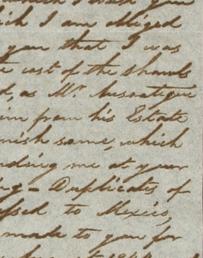 ich I am obliged
you that I was
e cost of the shawls
d, as Mr.
im from his Estate
nish same, which
nding me at your
ing - Duplicates of
ssed to Mexico,
made to you for